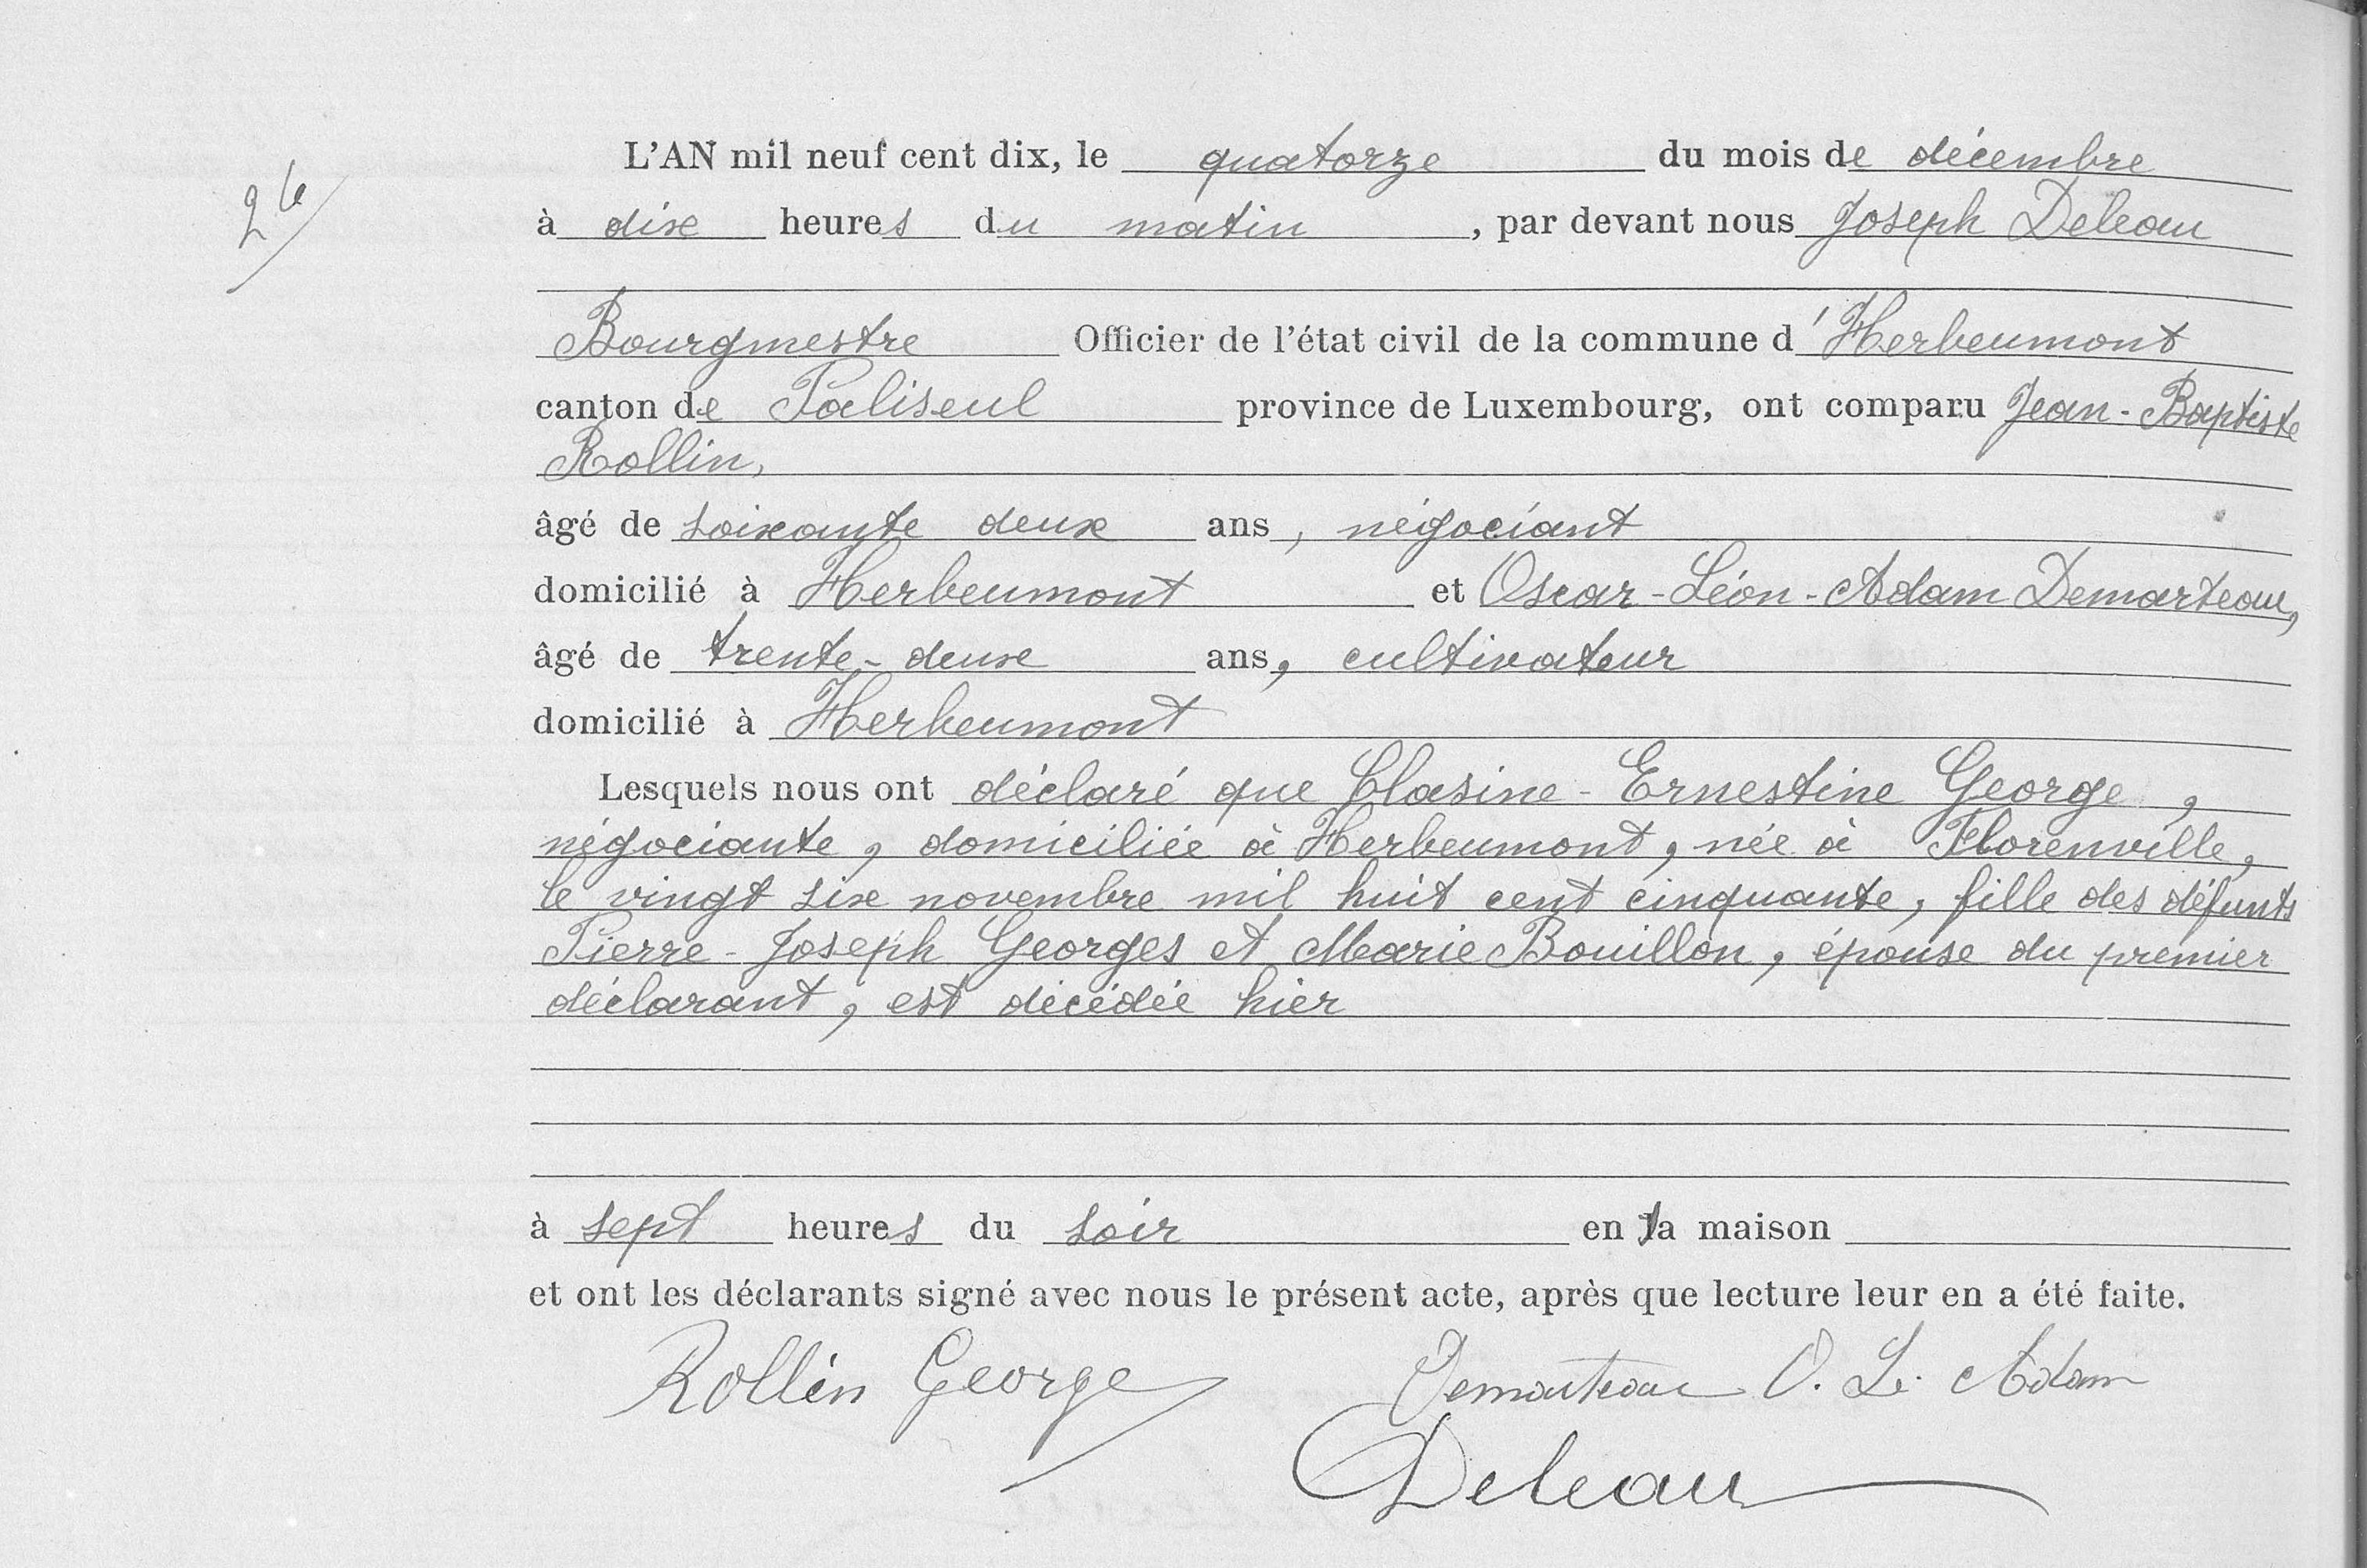 L'AN mil neuf cent dix, le quatorze du mois de décembre
26
à dix heures du matin, par devant nous Joseph Deleau
Bourgmestre Officier de l'état civil de la commune d'Herbeumont
canton de Paliseul province de Luxembourg, ont comparu Jean-Baptiste
Rollin,
âgé de soixante deux ans, négociant
domicilié à Herbeumont et Oscar-Léon-Adam Demarteau,
âgé de trente-deux ans, cultivateur
domicilié à Herbeumont
Lesquels nous ont déclaré que Clasine-Ernestine George,
négociante, domiciliée à Herbeumont, née à Florenville,
le vingt six novembre mil huit cent cinquante, fille des défunts
Pierre-Joseph Georges et Marie Bouillon, épouse du premier
déclarant, est décédée hier
à sept heures du soir en sa maison
et ont les déclarants signé avec nous le présent acte, après que lecture leur en a été faite.
Rollin George Demarteau O. L. Adam
Deleau